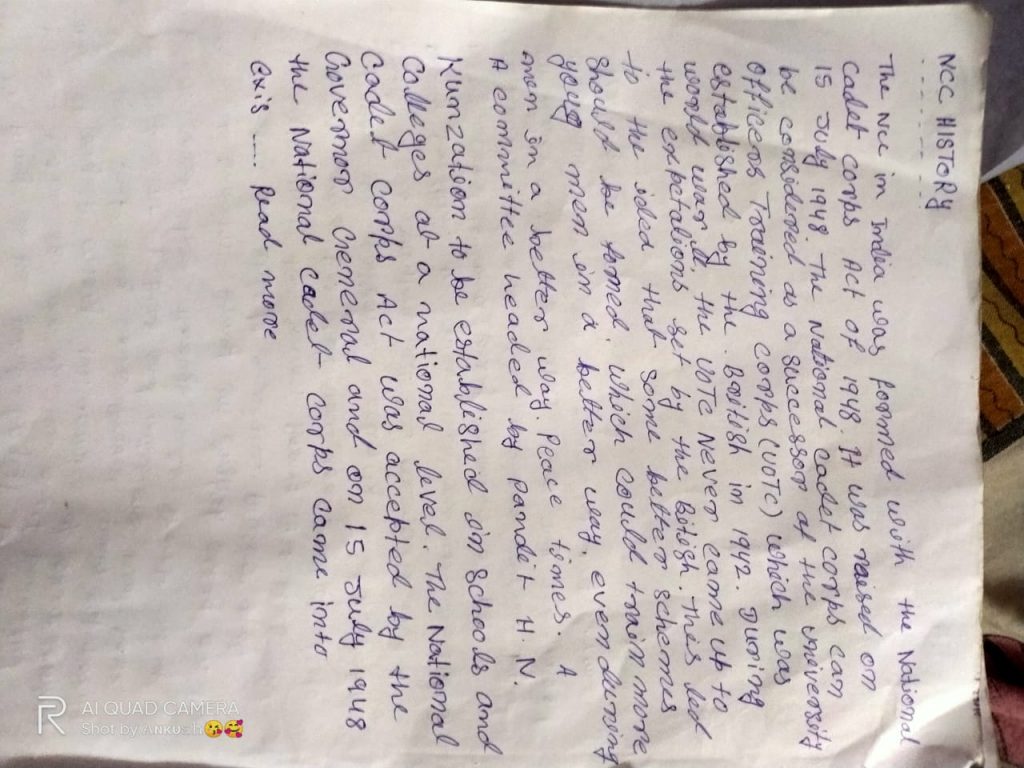 NCC HISTORY
The NCC in India was formed with the National
cadet corps Act of 1948. It was raised on
15 July 1948. The National cadet corps can
be considered as a successor of the university
officers Training corps (UOTC) which was
established by the British in 1942. During
world war II, the UOTC Never came up to
the expetations set by the Bitish. This led
to the idea that some better schemes
should be formed. which could train more
young men in a better way, even during
men in a better way. Peace times. A
A committee headed by pandit H. N.
Kunzation to be established in schools and
Calleges at a national level. The National
Cadet corps Act was accepted by the
Governor General and on 15 July 1948
the National cadet corps came into
exis .... Read more
AI QUAD CAMERA
Shot by Ankush😘🥰